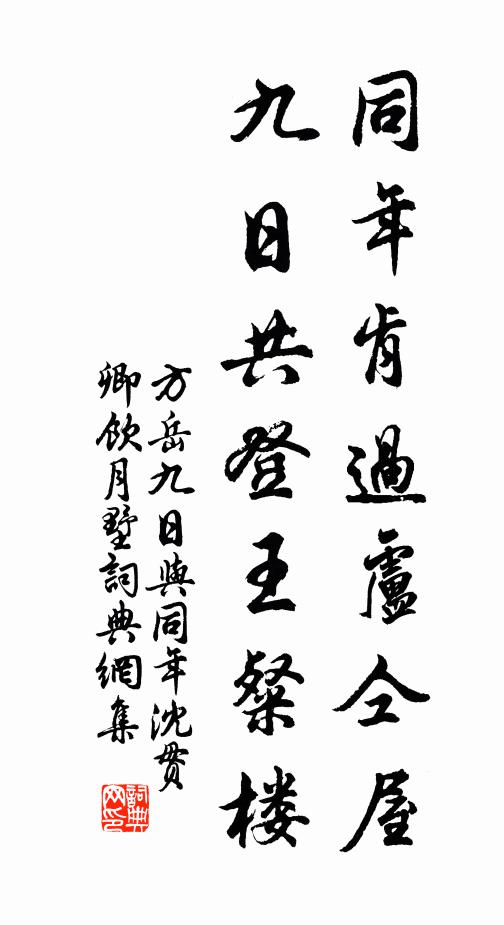 同年肯過盧仝屋
九日共登王粲楼
方岳九日與同年沈貫
卿飲月墅詞典網集
詞典
网印